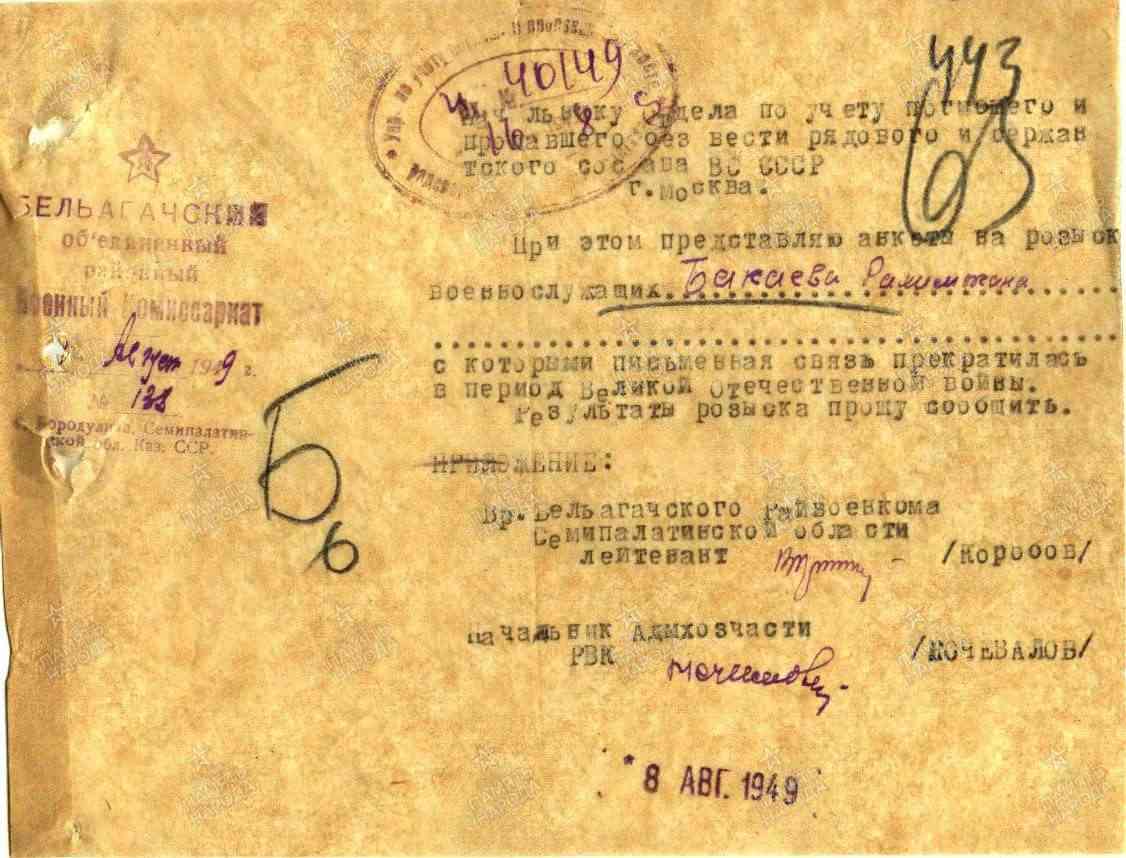 443
63
40149
16 8
Начальнику отдела по учету погибшего и
пропавшего без вести рядового и сержан
тского состава ВС СССР
г.Москва.
БЕЛЬАГАЧСКИЙ
об'единенный
районный
Военный Комиссариат
Август 1949 г.
№ 138
Бородулиха, Семипалатин-
ской обл. Каз. ССР.
При этом представляю анкеты на розыск
военнослужащих Бакаева Рахимжана
с которыми письменная связь прекратилась
в период Великой Отечественной войны.
Результаты розыска прошу сообщить.
ПРИЛОЖЕНИЕ:
Б
6
Вр.Бельагачского Райвоенкома
Семипалатинской области
лейтенант /Коробов/
Начальник Адмхозчасти
РВК /КОЧЕВАЛОВ/
8 АВГ. 1949